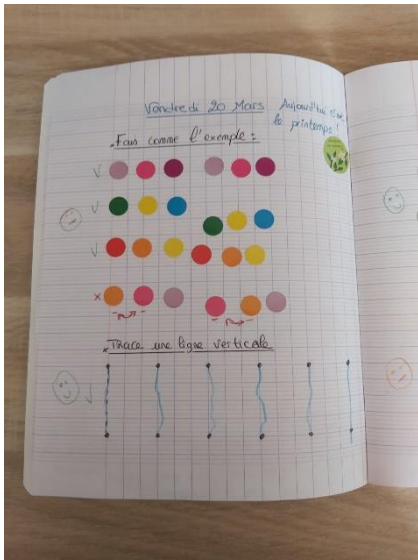 Vendredi 20 Mars Aujourd'hui c'est
le printemps !
Fais comme l'exemple :
Trace une ligne verticale